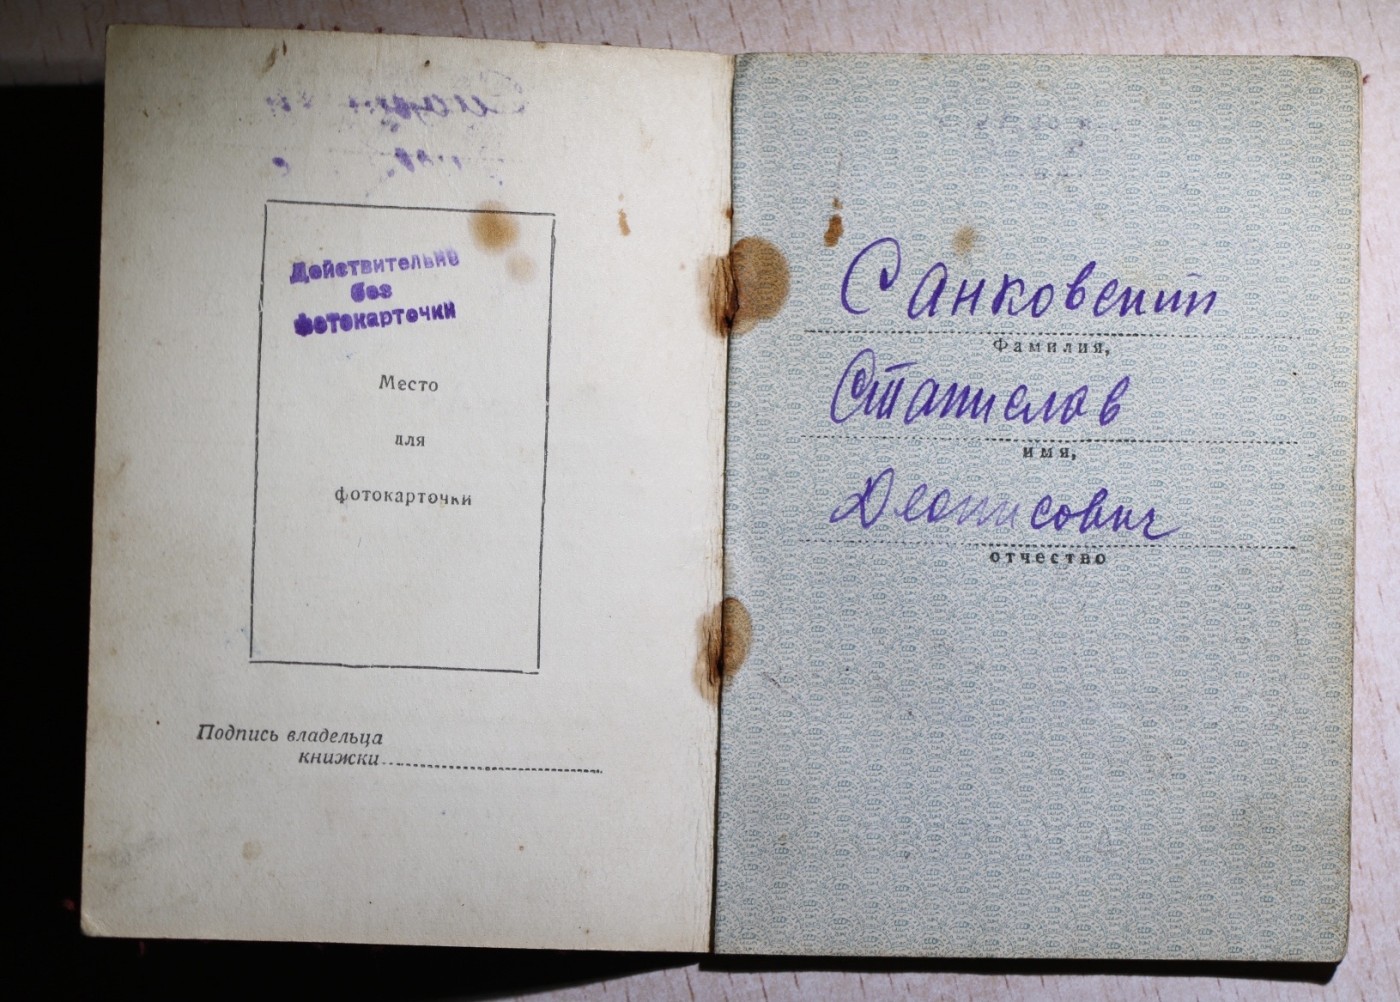 Действительно
без
фотокарточки
Место
для
фотокарточки
Подпись владельца
книжки
Санковский
Фамилия,
Станислав
имя,
Деонисович
отчество